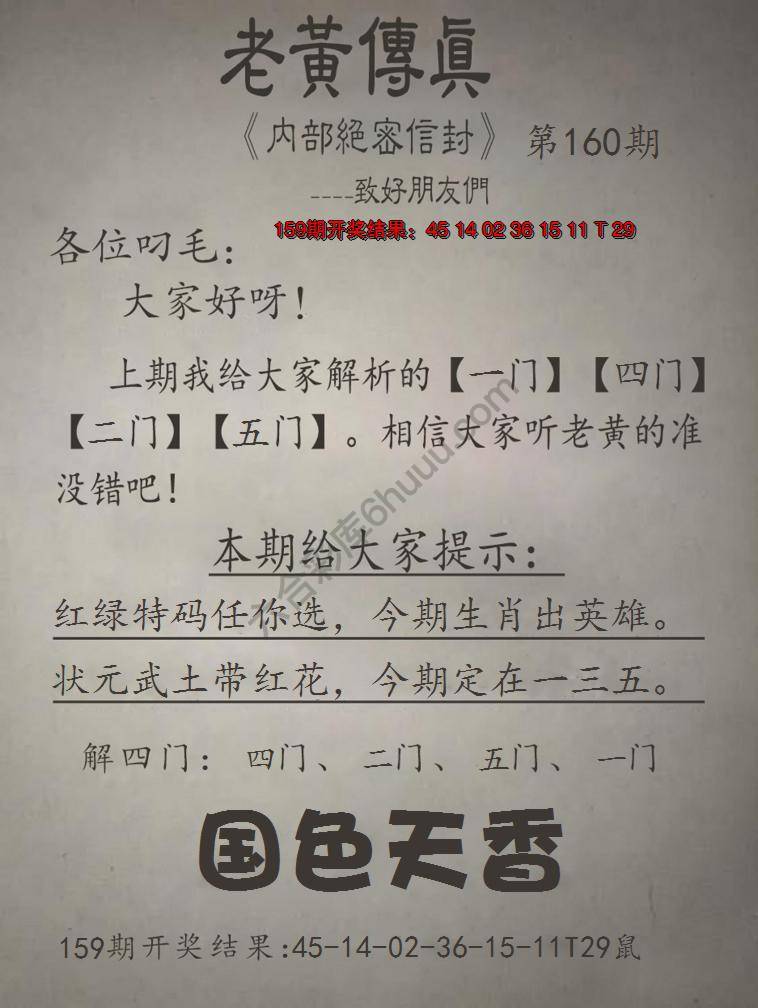 老黃傳眞
《内部絕密信封》 第160期
----致好朋友們
159期开奖结果：45 14 02 36 15 11 T 29
各位叼毛：
大家好呀！
上期我给大家解析的【一门】【四门】
【二门】【五门】。相信大家听老黄的准
没错吧！
本期给大家提示：
红绿特码任你选，今期生肖出英雄。
状元武土带红花，今期定在一三五。
解四门：四门、二门、五门、一门
国色天香
159期开奖结果:45-14-02-36-15-11T29鼠
六合彩库6huuu.com